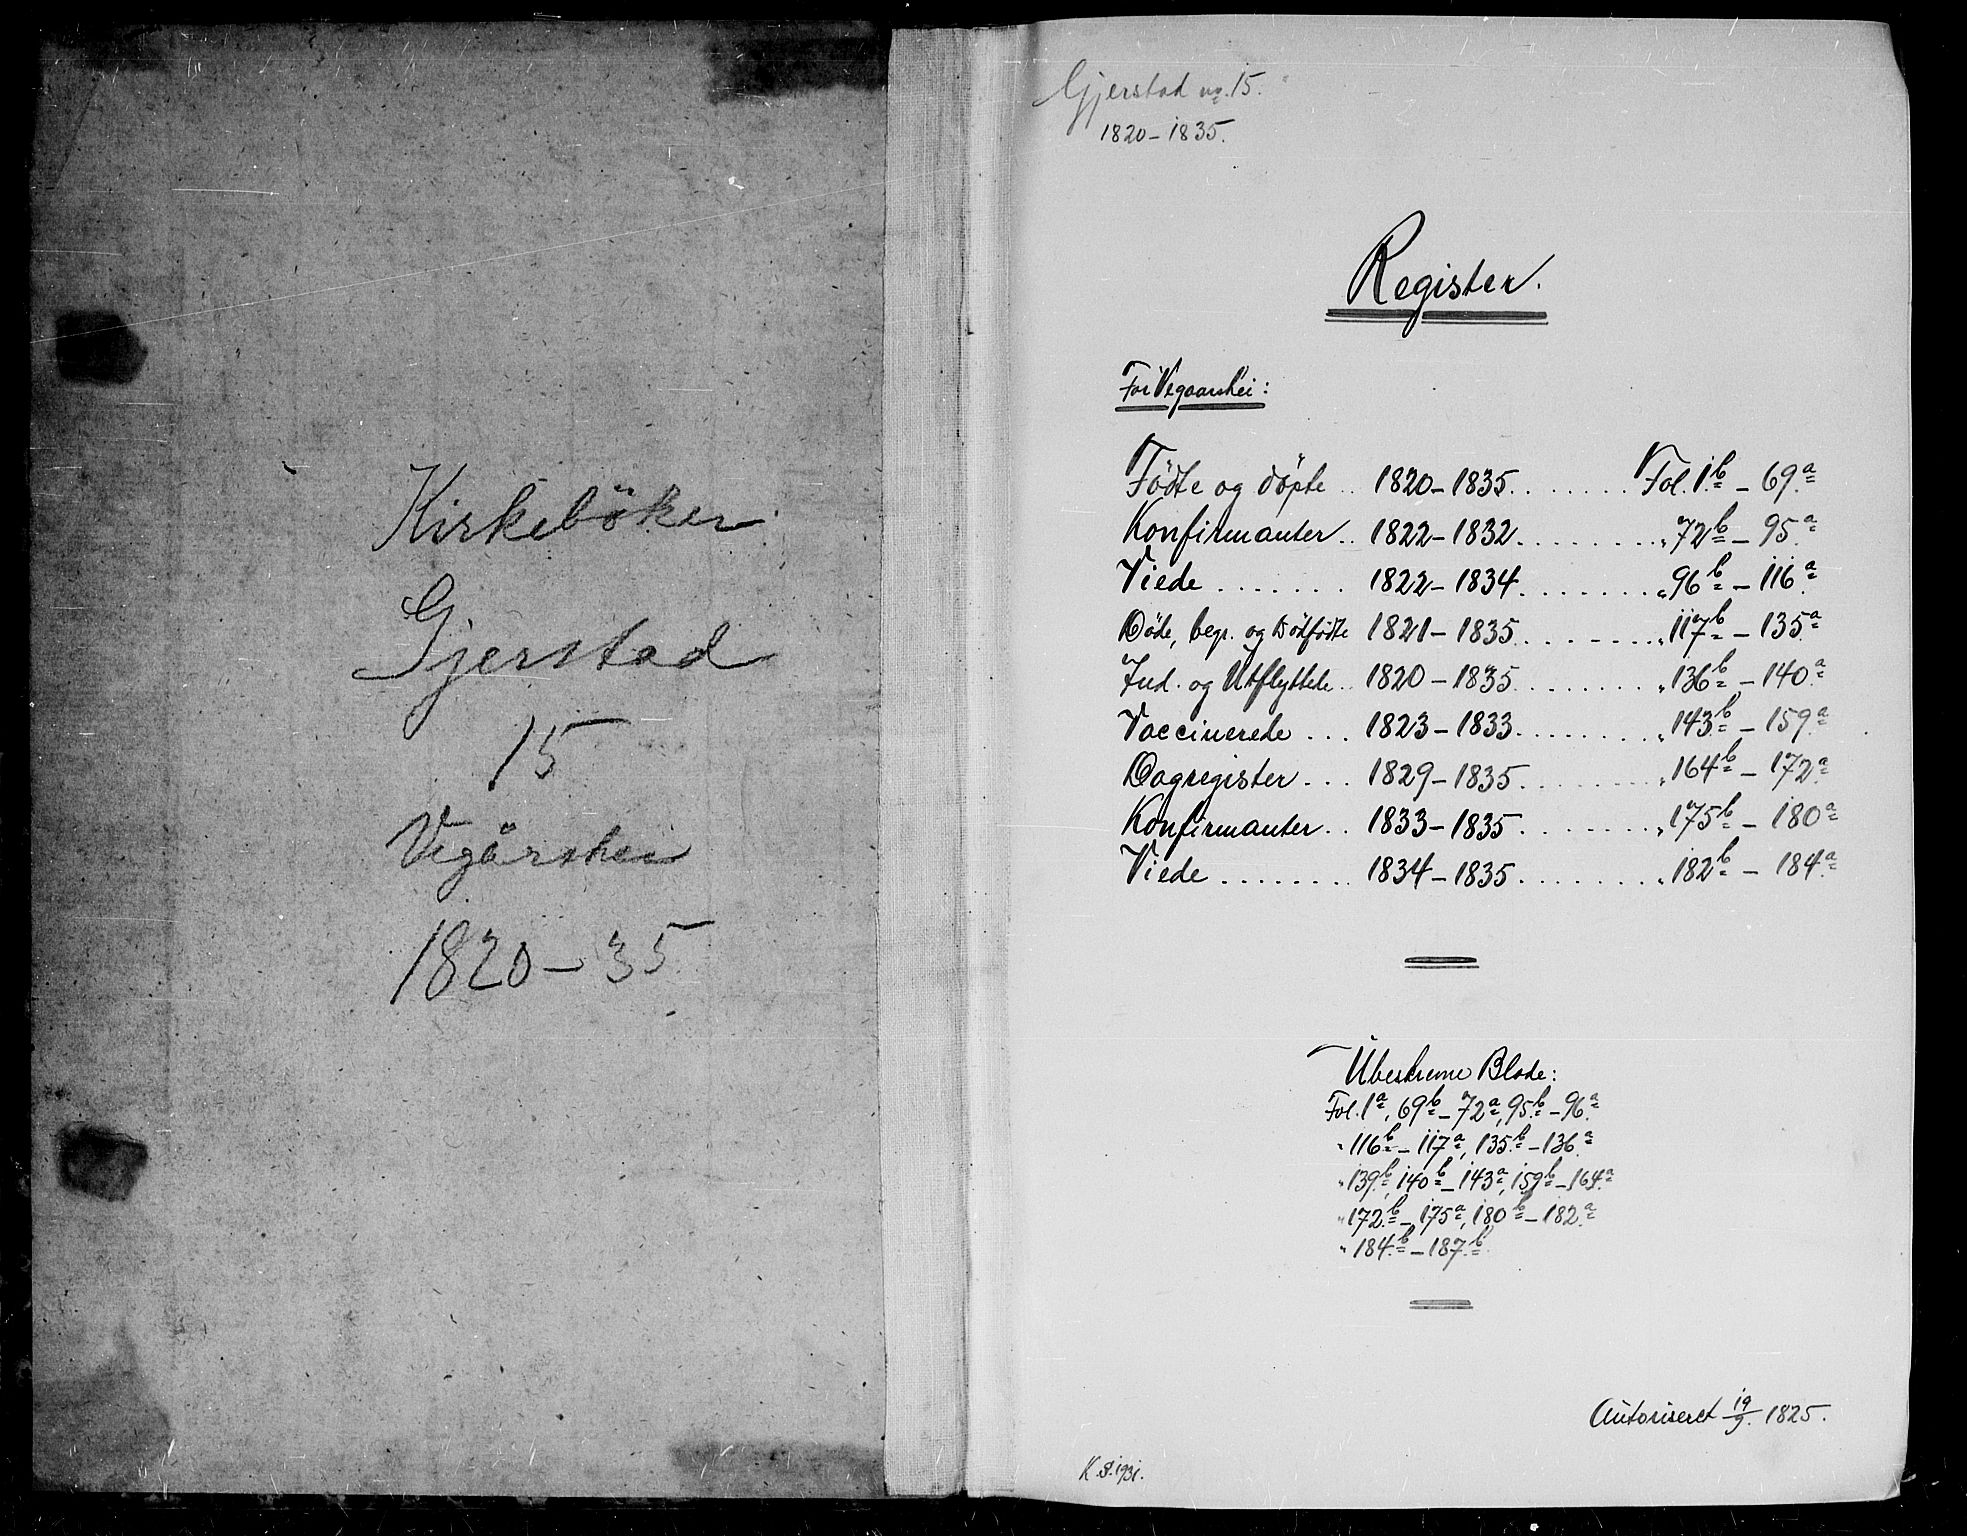 Kirkeböker
Gjerstad
15
Vegårshei
1820-35
Gjerstad nr. 15.
1820-1835.
Register.
For Vegaarshei:
Födte og döpte .. 1820-1835. . . . . . . Fol. 1.b - 69.a
Konfirmanter .. 1822-1832. . . . . . . . „ 72b - 95.a
Viede . . . . . . . 1822-1834. . . . . . . . „ 96b - 116a
Döde, begr. og Dödfödte 1821-1835. . . . . . . „ 117b - 135a
Ind. og Utflyttede .. 1820-1835. . . . . . . . „ 136b - 140a
Vaccinerede . . . 1823-1833. . . . . . . . „ 143b - 159a
Dagregister . . . 1829-1835. . . . . . . . „ 164b - 172a
Konfirmanter .. 1833-1835. . . . . . . . „ 175b - 180a
Viede . . . . . . . . 1834-1835. . . . . . . . „ 182b - 184a
Ubeskrevne Blade:
Fol. 1a, 69b - 72a, 95b - 96a
„ 116b - 117a, 135b - 136a
„ 139b, 140b - 143a, 159b - 164a
„ 172b - 175a, 180b - 182a
„ 184b - 187b
Autoriseret 19/9. 1825.
K.S. 1931.